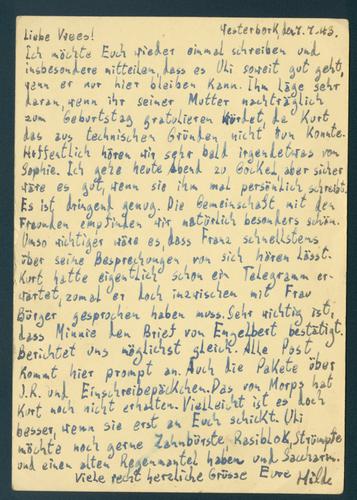 Liebe Vrees! Westerbork, den 7.7.43.
Ich möchte Euch wieder einmal schreiben und
insbesondere mitteilen, dass es Uki soweit gut geht,
wenn er nur hier bleiben kann. Ihm läge sehr
daran, wenn ihr seiner Mutter nachträglich
zum Geburtstag gratulieren würdet, da Kurt
das aus technischen Gründen nicht tun konnte.
Hoffentlich hören wir sehr bald irgendetwas von
Sophie. Ich gehe heute Abend zu Gockel, aber sicher
wäre es gut, wenn sie ihm mal persönlich schreibt.
Es ist dringend genug. Die Gemeinschaft mit den
Freunden empfinden wir natürlich besonders schön.
Umso wichtiger wäre es, dass Franz schnellstens
über seine Besprechungen von sich hören lässt.
Kurt hatte eigentlich schon ein Telegramm er-
wartet, zumal er doch inzwischen mit Frau
Bürger gesprochen haben muss. Sehr wichtig ist,
dass Minnie den Brief von Engelbert bestätigt.
Berichtet uns möglichst gleich. Alle Post
kommt hier prompt an. Auch die Pakete über
J.R. und Einschreibepäckchen. Das von Morps hat
Kurt noch nicht erhalten. Vielleicht ist es doch
besser, wenn sie erst an Euch schickt. Uki
möchte noch gerne Zahnbürste, Rasiblok, Strümpfe
und einen alten Regenmantel haben und Saccharin.
Viele recht herzliche Grüsse Eure Hilde